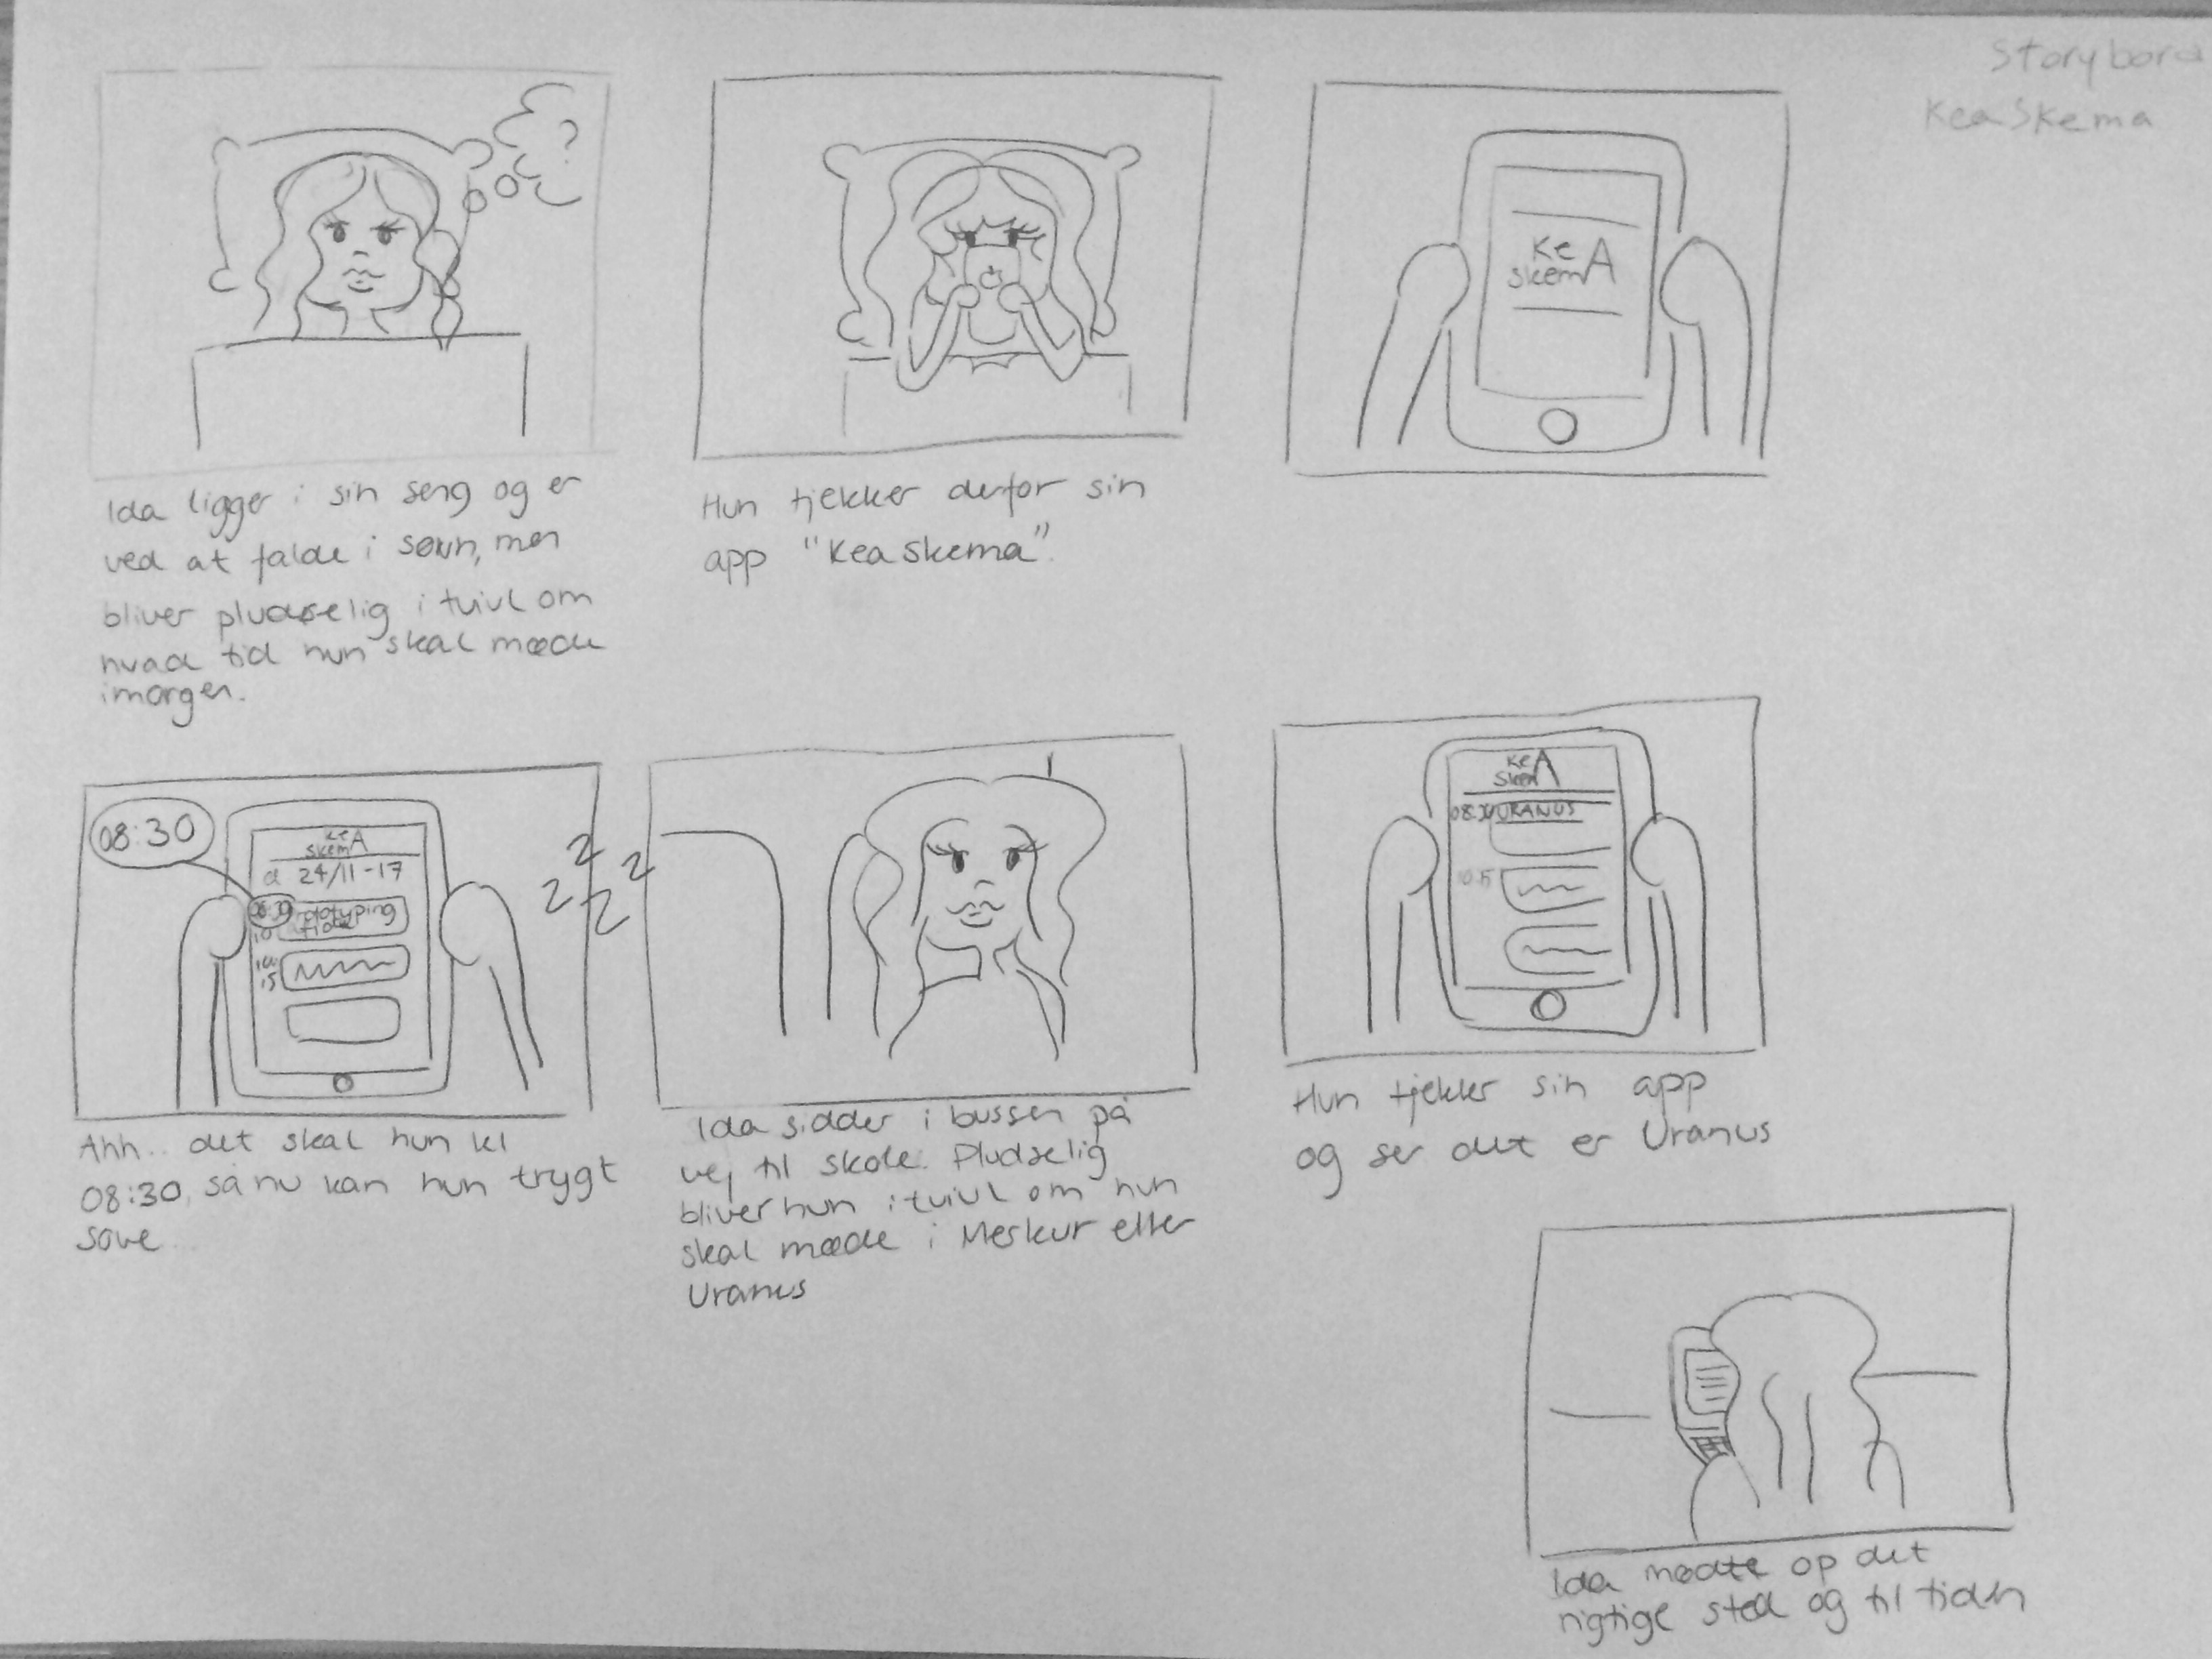 Storybord
KeaSkema
?
Ida ligger i sin seng og er
ved at falde i søvn, men
bliver pludselig i tvivl om
hvad tid hun skal møde
imorgen.
Hun tjekker derfor sin
app "Kea Skema".
Ke
skemA
08:30
Ke
skemA
d 24/11-17
08:30
10
10
15
z
z
z
z
Ahh.. det skal hun kl
08:30, så nu kan hun trygt
sove...
Ida sidder i bussen på
vej til skole. Pludselig
bliver hun i tvivl om hun
skal møde i Merkur eller
Uranus
Ke
SkemA
08:30 URANUS
Hun tjekker sin app
og ser det er Uranus
Ida mødte op det
rigtige sted og til tiden